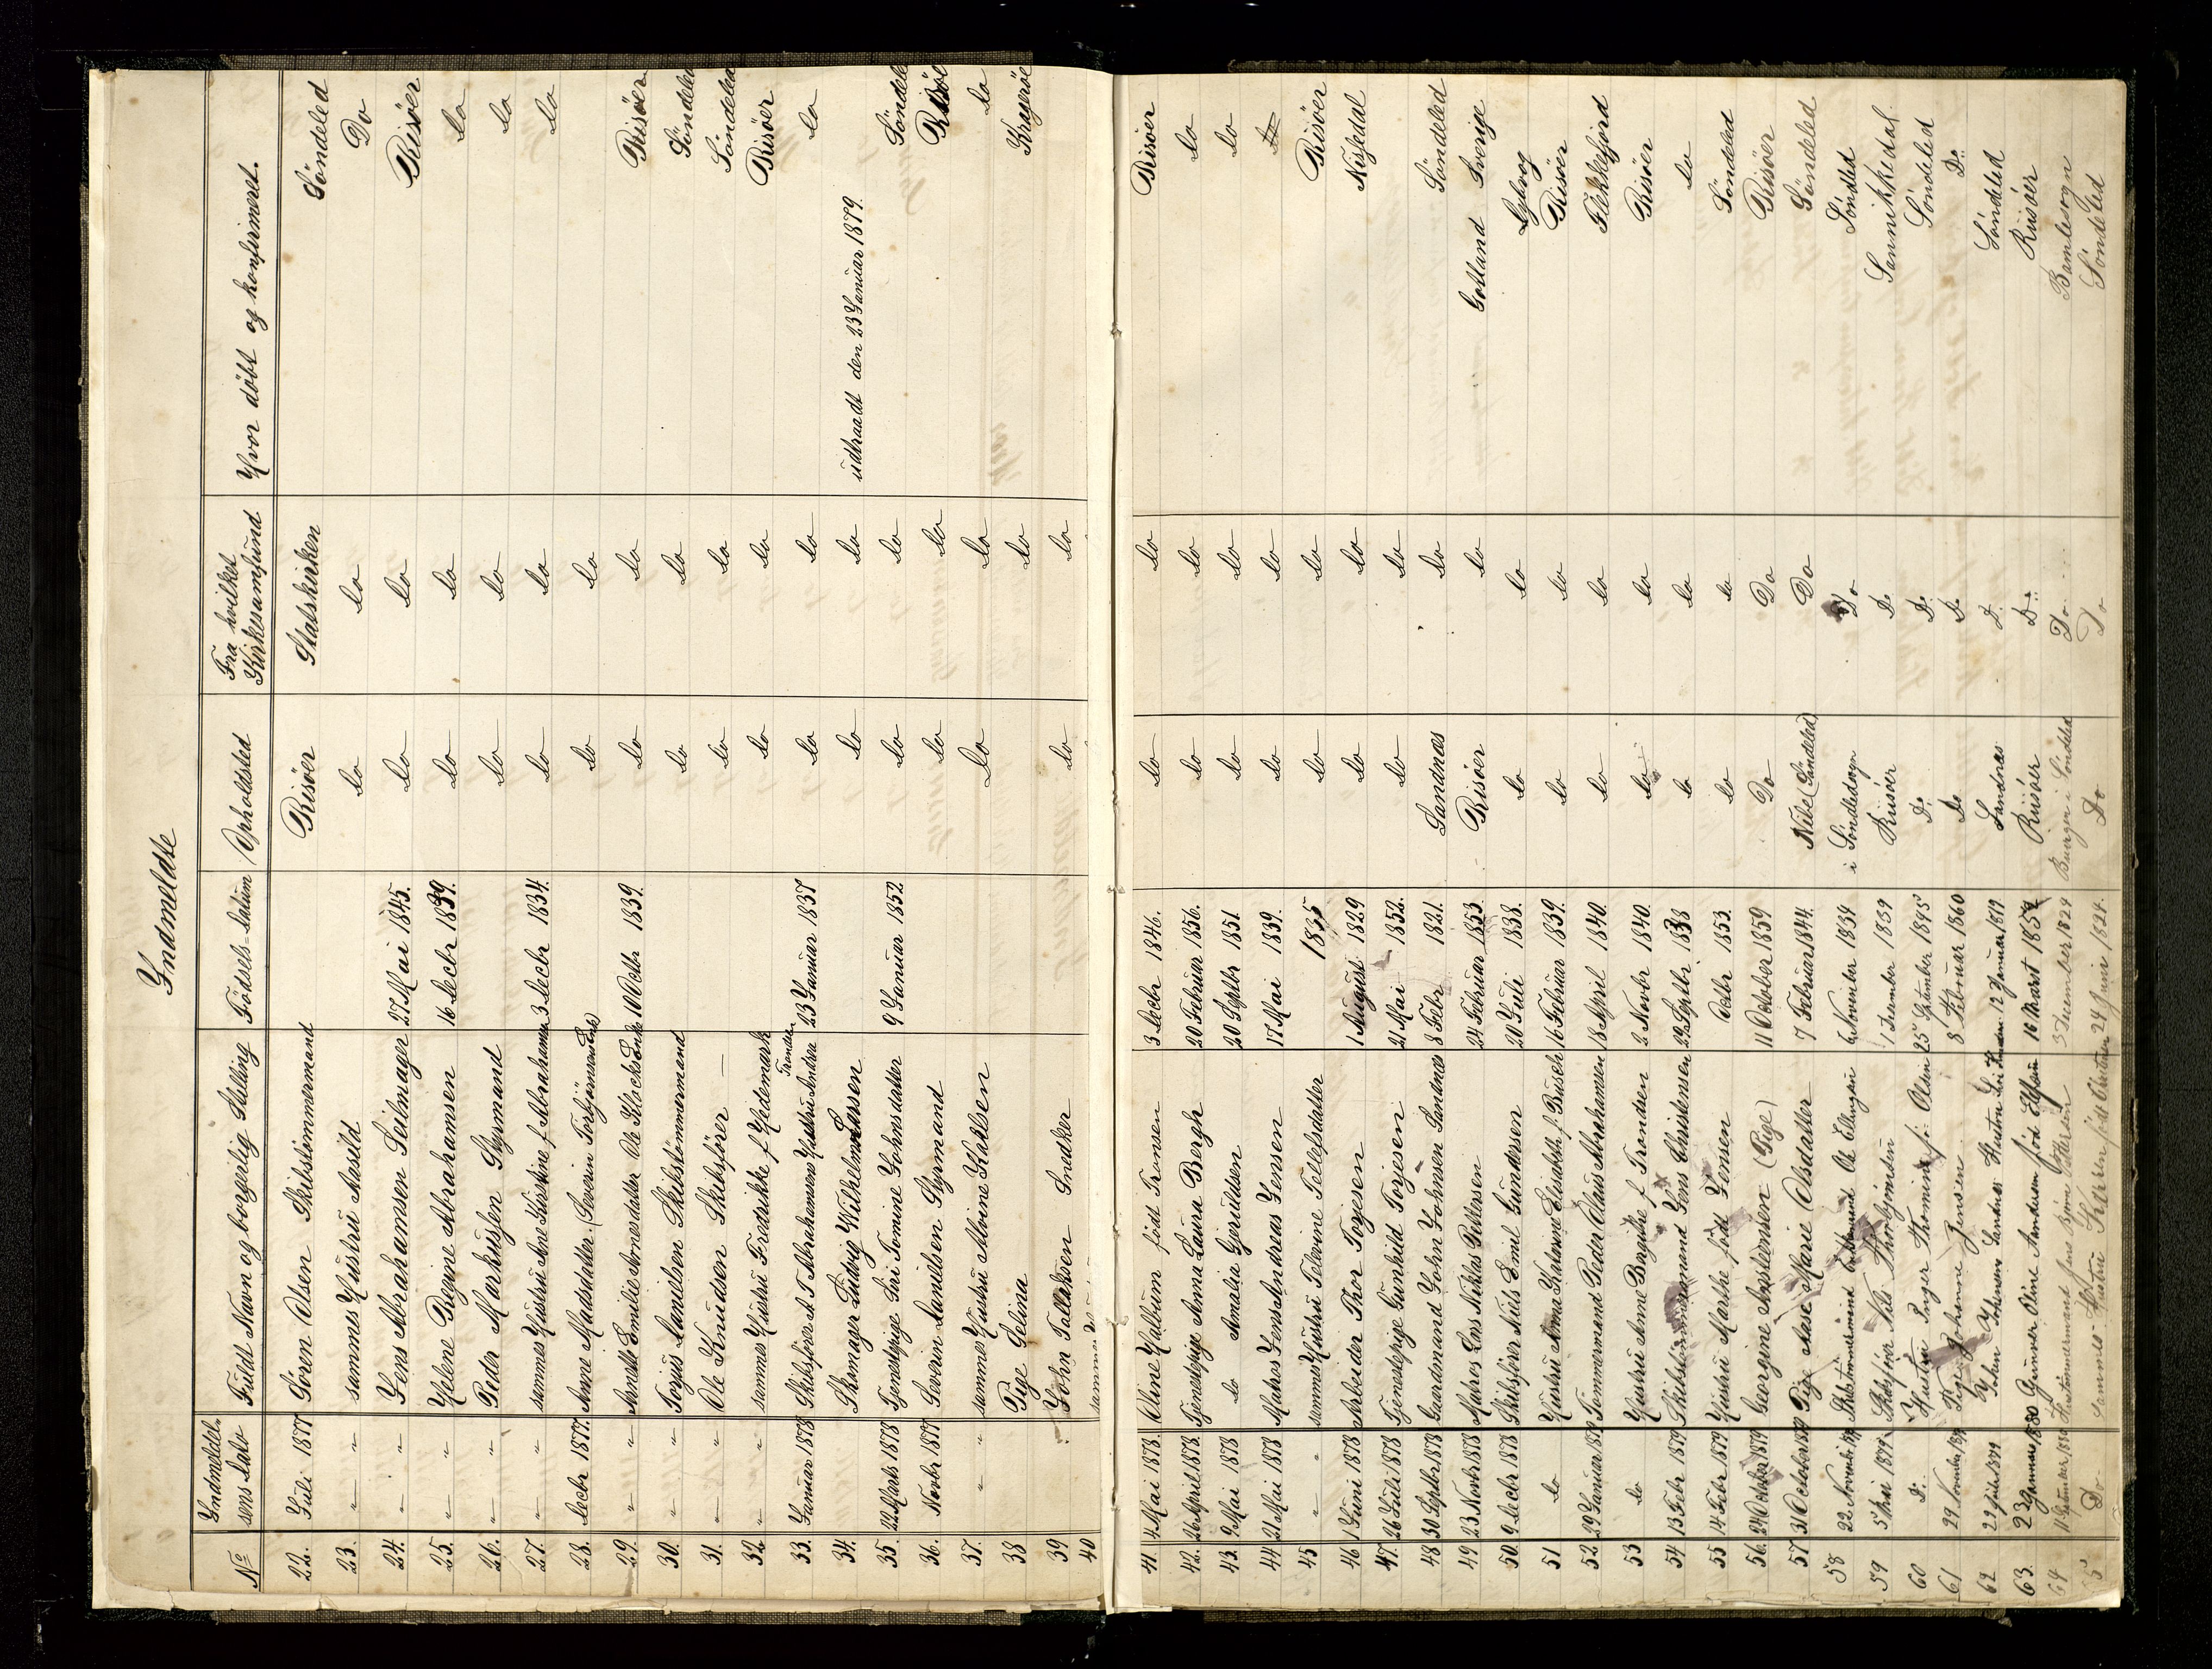 Indmeldte
No Indmeldelsens Dato Fuldt Navn og borgerlig Stilling Fødsels-Datum Opholdsted Fra hvilket Kirkesamfund Hvor døbt og konfirmeret.
22. Juli 1877 Søren Olsen Skibstømmermand Risøer Statskirken Søndeled
23. " " sammes Hustru Aasild do do Do
24. " " Jens Abrahamsen Seilmager 27 Mai 1845. do do Risøer
25. " " Helene Regine Abrahamsen 16 Decbr 1839. do do do
26. " " Peder Markussen Styrmand do do do
27. " " sammes Hustru Ane Kirstine f Abrahamsen 3 Decbr 1834. do do do
28. Decbr 1877. Anne Madsdatter (Severin Torbjørnsens Enke) do do
29. " " Arnolde Emilie Arnesdatter Ole Klocks Enke 10 Octbr 1839. do do Risøer
30. " " Torjus Danielsen Skibstømmermand do do Søndeled
31. " " Ole Knudsen Skibsfører — do do Søndeled
32. " " sammes Hustru Fredrikke f Hedemark do do Risøer
33. Januar 1878 Skibsfører A T Abrahamsens Hustru Andrea Trondsen 23 Januar 1837 do do do
34. Skomager Ludvig Wilhelm Larssen do do udtraadt den 23 Januar 1879.
35. 22 Marts 1878 Tjenestpige Siri Tomine Johnsdatter 9 Januar 1852 do do Søndeled
36. Novbr 1877 Severin Danielsen Styrmand do do Risøer
37. " " sammes Hustru Alvine Karlsen do do do
38 Pige Selina do Kragerøe
39 John Tallaksen Snedker do do
40 sammes Hustru
41. 4 Mai 1878. Oline Halbum født Tronsen 3 Decbr 1846. do do Risøer
42. 26 April 1878. Tjenestepige Anna Laura Bergh 20 Februar 1856. do do do
43. 9 Mai 1878 do Amalia Gjeruldsen 20 Septbr 1851. do do do
44 21 Mai 1878 Matros Jens Andreas Jensen 17 Mai 1839. do do do
45 " " sammes Hustru Televine Tellefsdatter 1835 do do Risøer
46 1 Juni 1878 Arbeider Thor Torjesen 1 August 1829 do do Nissedal
47. 26 Juli 1878 Tjenestepige Gunhild Torjesen 21 Mai 1852. do do
48 30 Septbr 1878 Gaardmand John Johnesen Sandnæs 8 Febr 1821. Sandnæs do Søndeled
49 23 Novbr 1878 Matros Lars Niklas Pettersen 24 Februar 1853. Risøer do Gotland Sverige
50. 9 Decbr 1878 Skibsfører Niels Emil Gundersen 20 Juli 1838. do do Dybvog
51 do Hustru Anna Kathrine Elisabeth f. Busch 16 Februar 1839. do do Risøer
52. 29 Januar 1879 Tømmermand Peder Claus Abrahamsen 18 April 1840. do do Flekkefjord
53 do Hustru Anne Bergithe f Trondsen 2 Novbr 1840. do do Risøer
54 13 Febr 1879 Skibstømmermand Jens Christensen 29 Septbr 1838 do do do
55 14 Febr 1879 Hustru Marthe født Jensen Octbr 1853. do do Søndeled
56. 24 October 1879 Georgine Axelensen (Pige) 11 October 1859 Do Do Risøer
57 31 October 1879 Pige Aase Marie Olsdatter 7 Februar 1844. Nibe (Søndeled) Do Søndeled
58 22 November 1879 Skibstømmermand Ole Ellingsen 6 November 1834 i Søndledsogn Do Søndled
59 5 Mai 1879 Skibsfører Nils Thorbjørnsen 1 December 1839 Riisøer Do Sannikkedal.
60 Do. Hustru Inger Thomine f: Olsen 25 September 1845 Do. Do Søndeled
61 29 November 1879 Pige Johanne Jensen 8 Februar 1860 Do Do Do.
62 29 Juli 1879 John Johnsen Sandnæs Hustru 12 Januar 1819 Sandnæs D. Søndeled
63. 23 Januar 1880 Gunner Oline Andersen fød 16 Marst Riisøer Do. Riisøer
64 11 Februar 1880 Skibstømmermand 3 December 1824 i Søndeled Do Bamlesogn
65 Do sammes Hustru født 24 Juni 1824. Do Do Søndeled